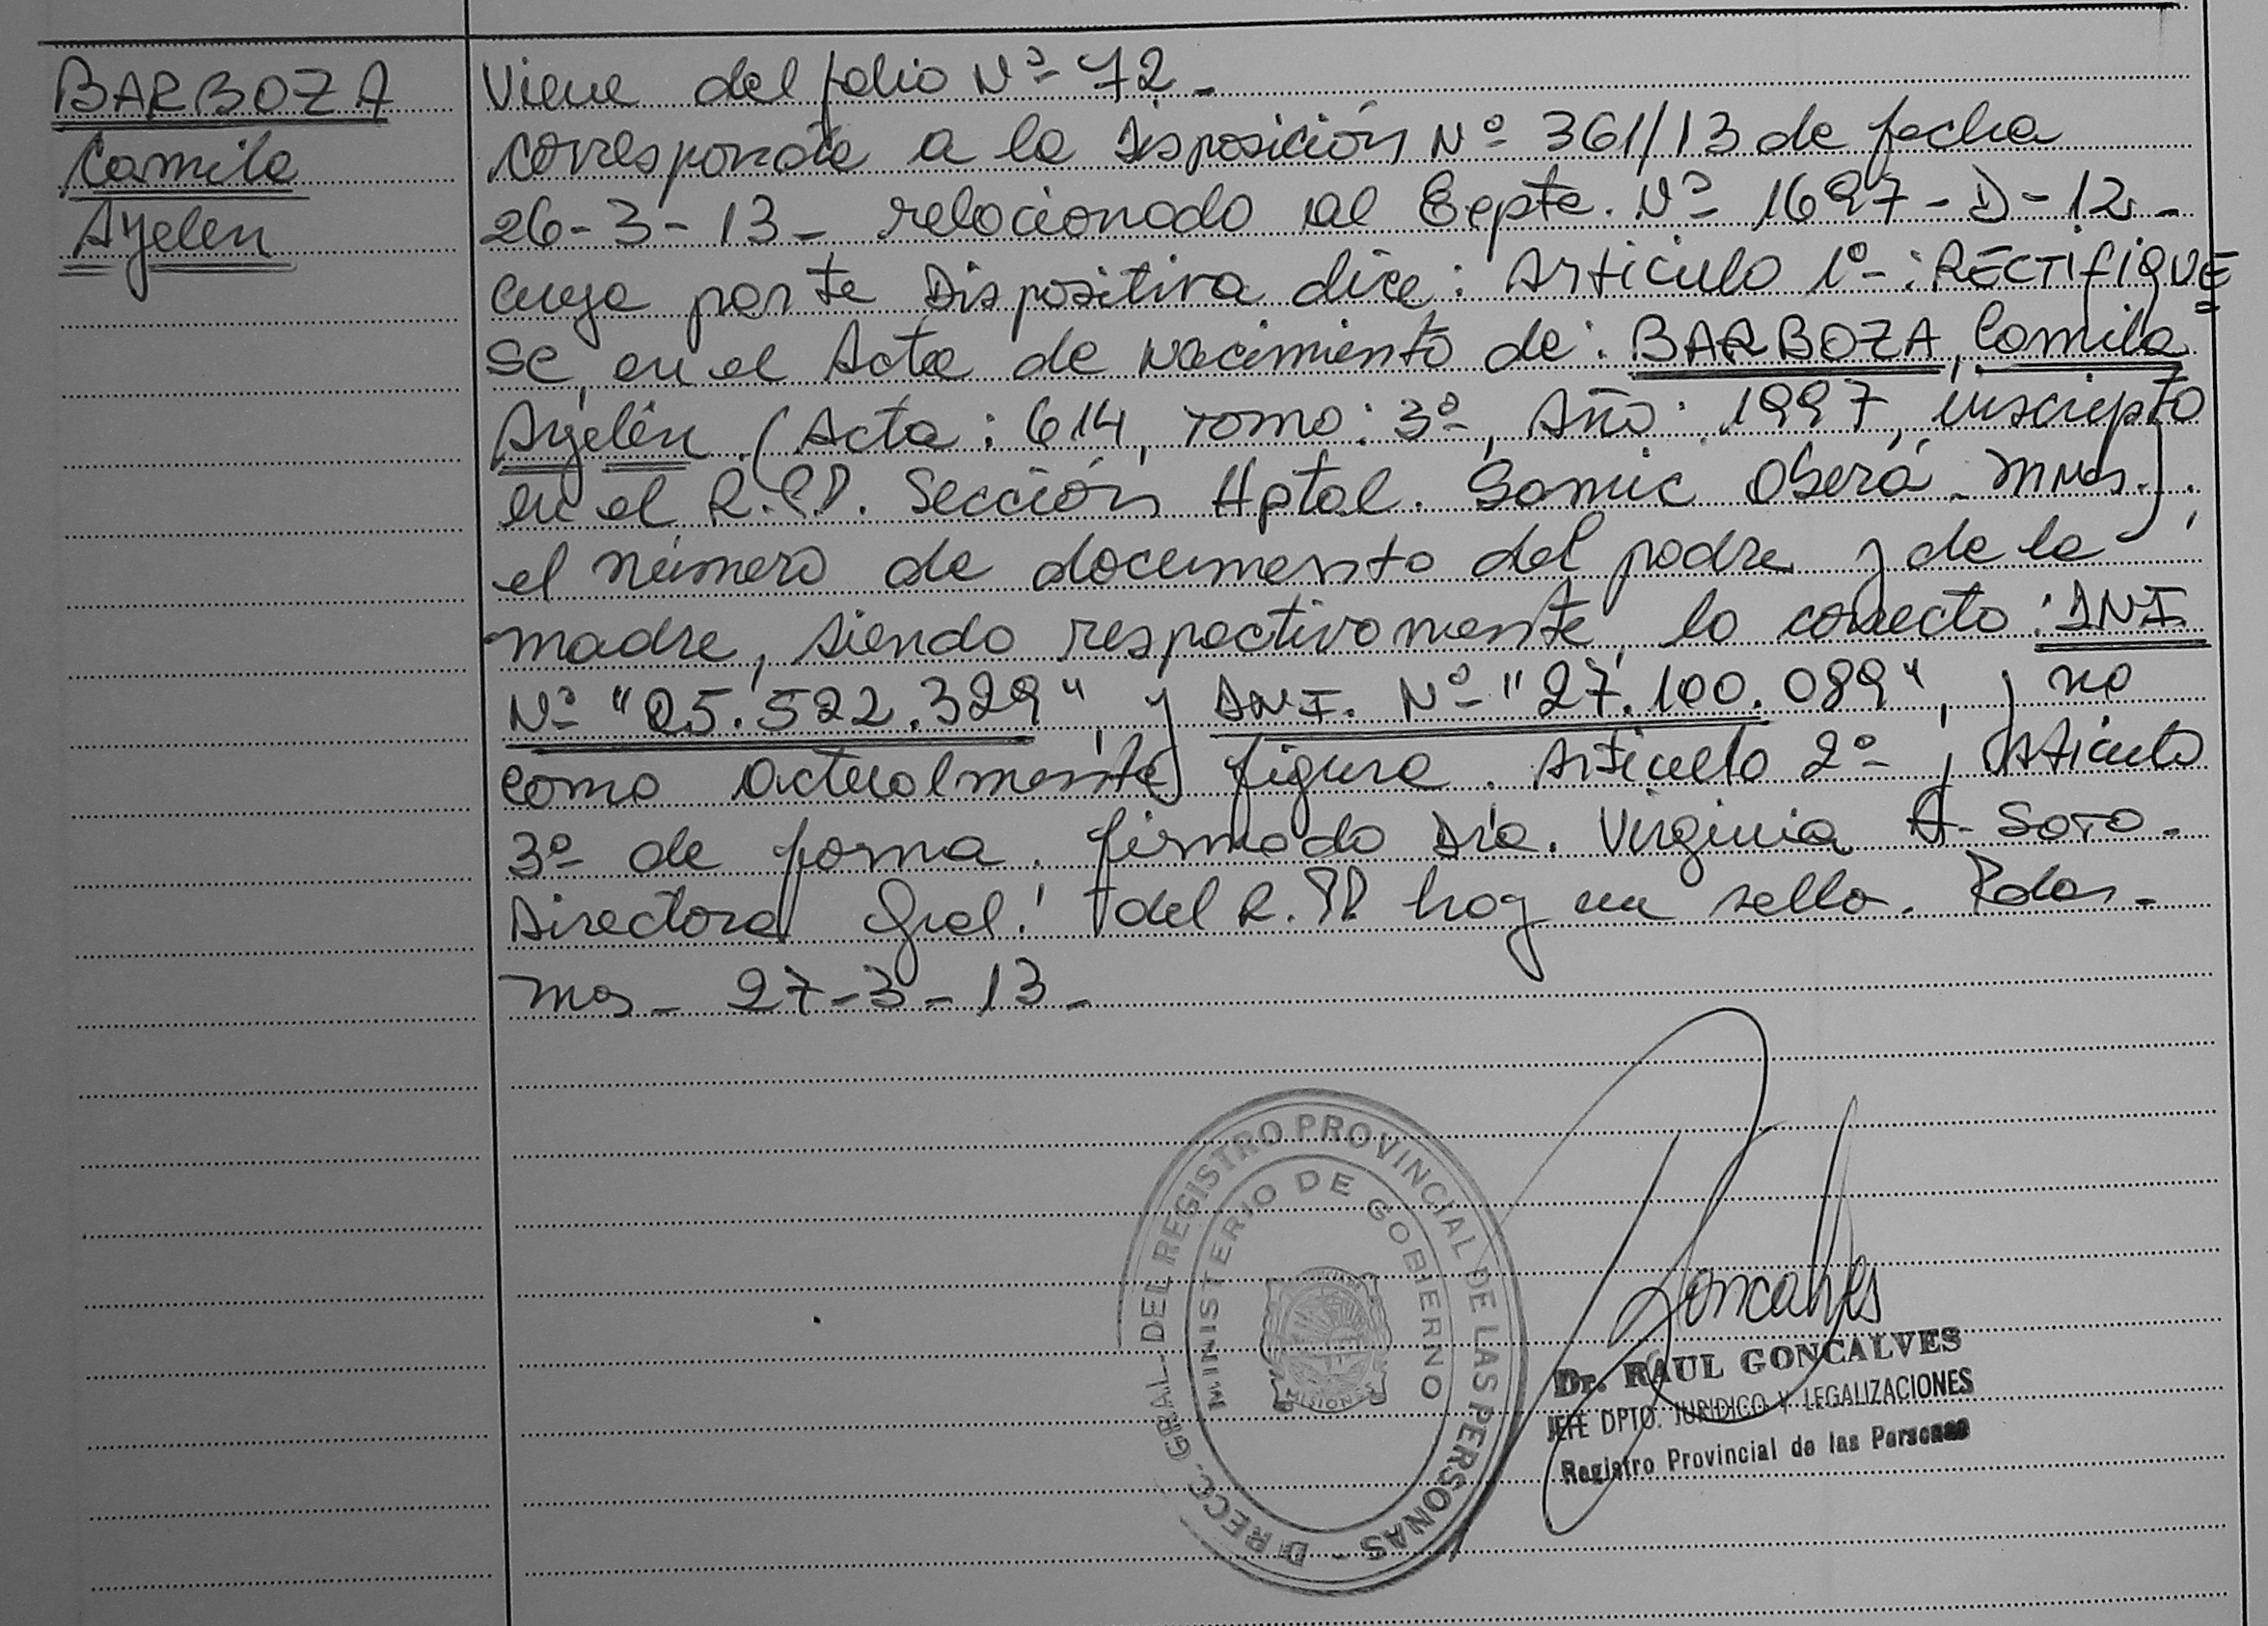 BARBOZA
Camila
Ayelen
Viene del folio Nº 72 -
corresponde a la Disposición Nº 361/13 de fecha
26-3-13 - relacionado al Expte. Nº 1697-D-12 -
cuya parte Dispositiva dice: Articulo 1º-: RECTIFIQUE
SE, en el Acta de Nacimiento de: BARBOZA, Camila
Ayelén (Acta: 614, Tomo: 3º, Año: 1997, inscripto
en el R.P.P. Sección Hptal. Samic Oberá - Mnes.),
el número de documento del padre y de la
madre, siendo respectivamente, lo correcto: DNI
Nº "25.522.329", y DNI. Nº "27.100.089", y no
como actualmente figura. Articulo 2º, Articulo
3º de forma. firmado Dra. Virginia A. Soto -
Directora Gral. del R.PP hay un sello. Pdas -
Mns - 27-3-13 -
DIRECC. GRAL. DEL REGISTRO PROVINCIAL DE LAS PERSONAS -
MINISTERIO DE GOBIERNO
MISIONES
Goncalves
Dr. RAUL GONCALVES
JEFE DPTO. JURIDICO Y LEGALIZACIONES
Registro Provincial de las Personas